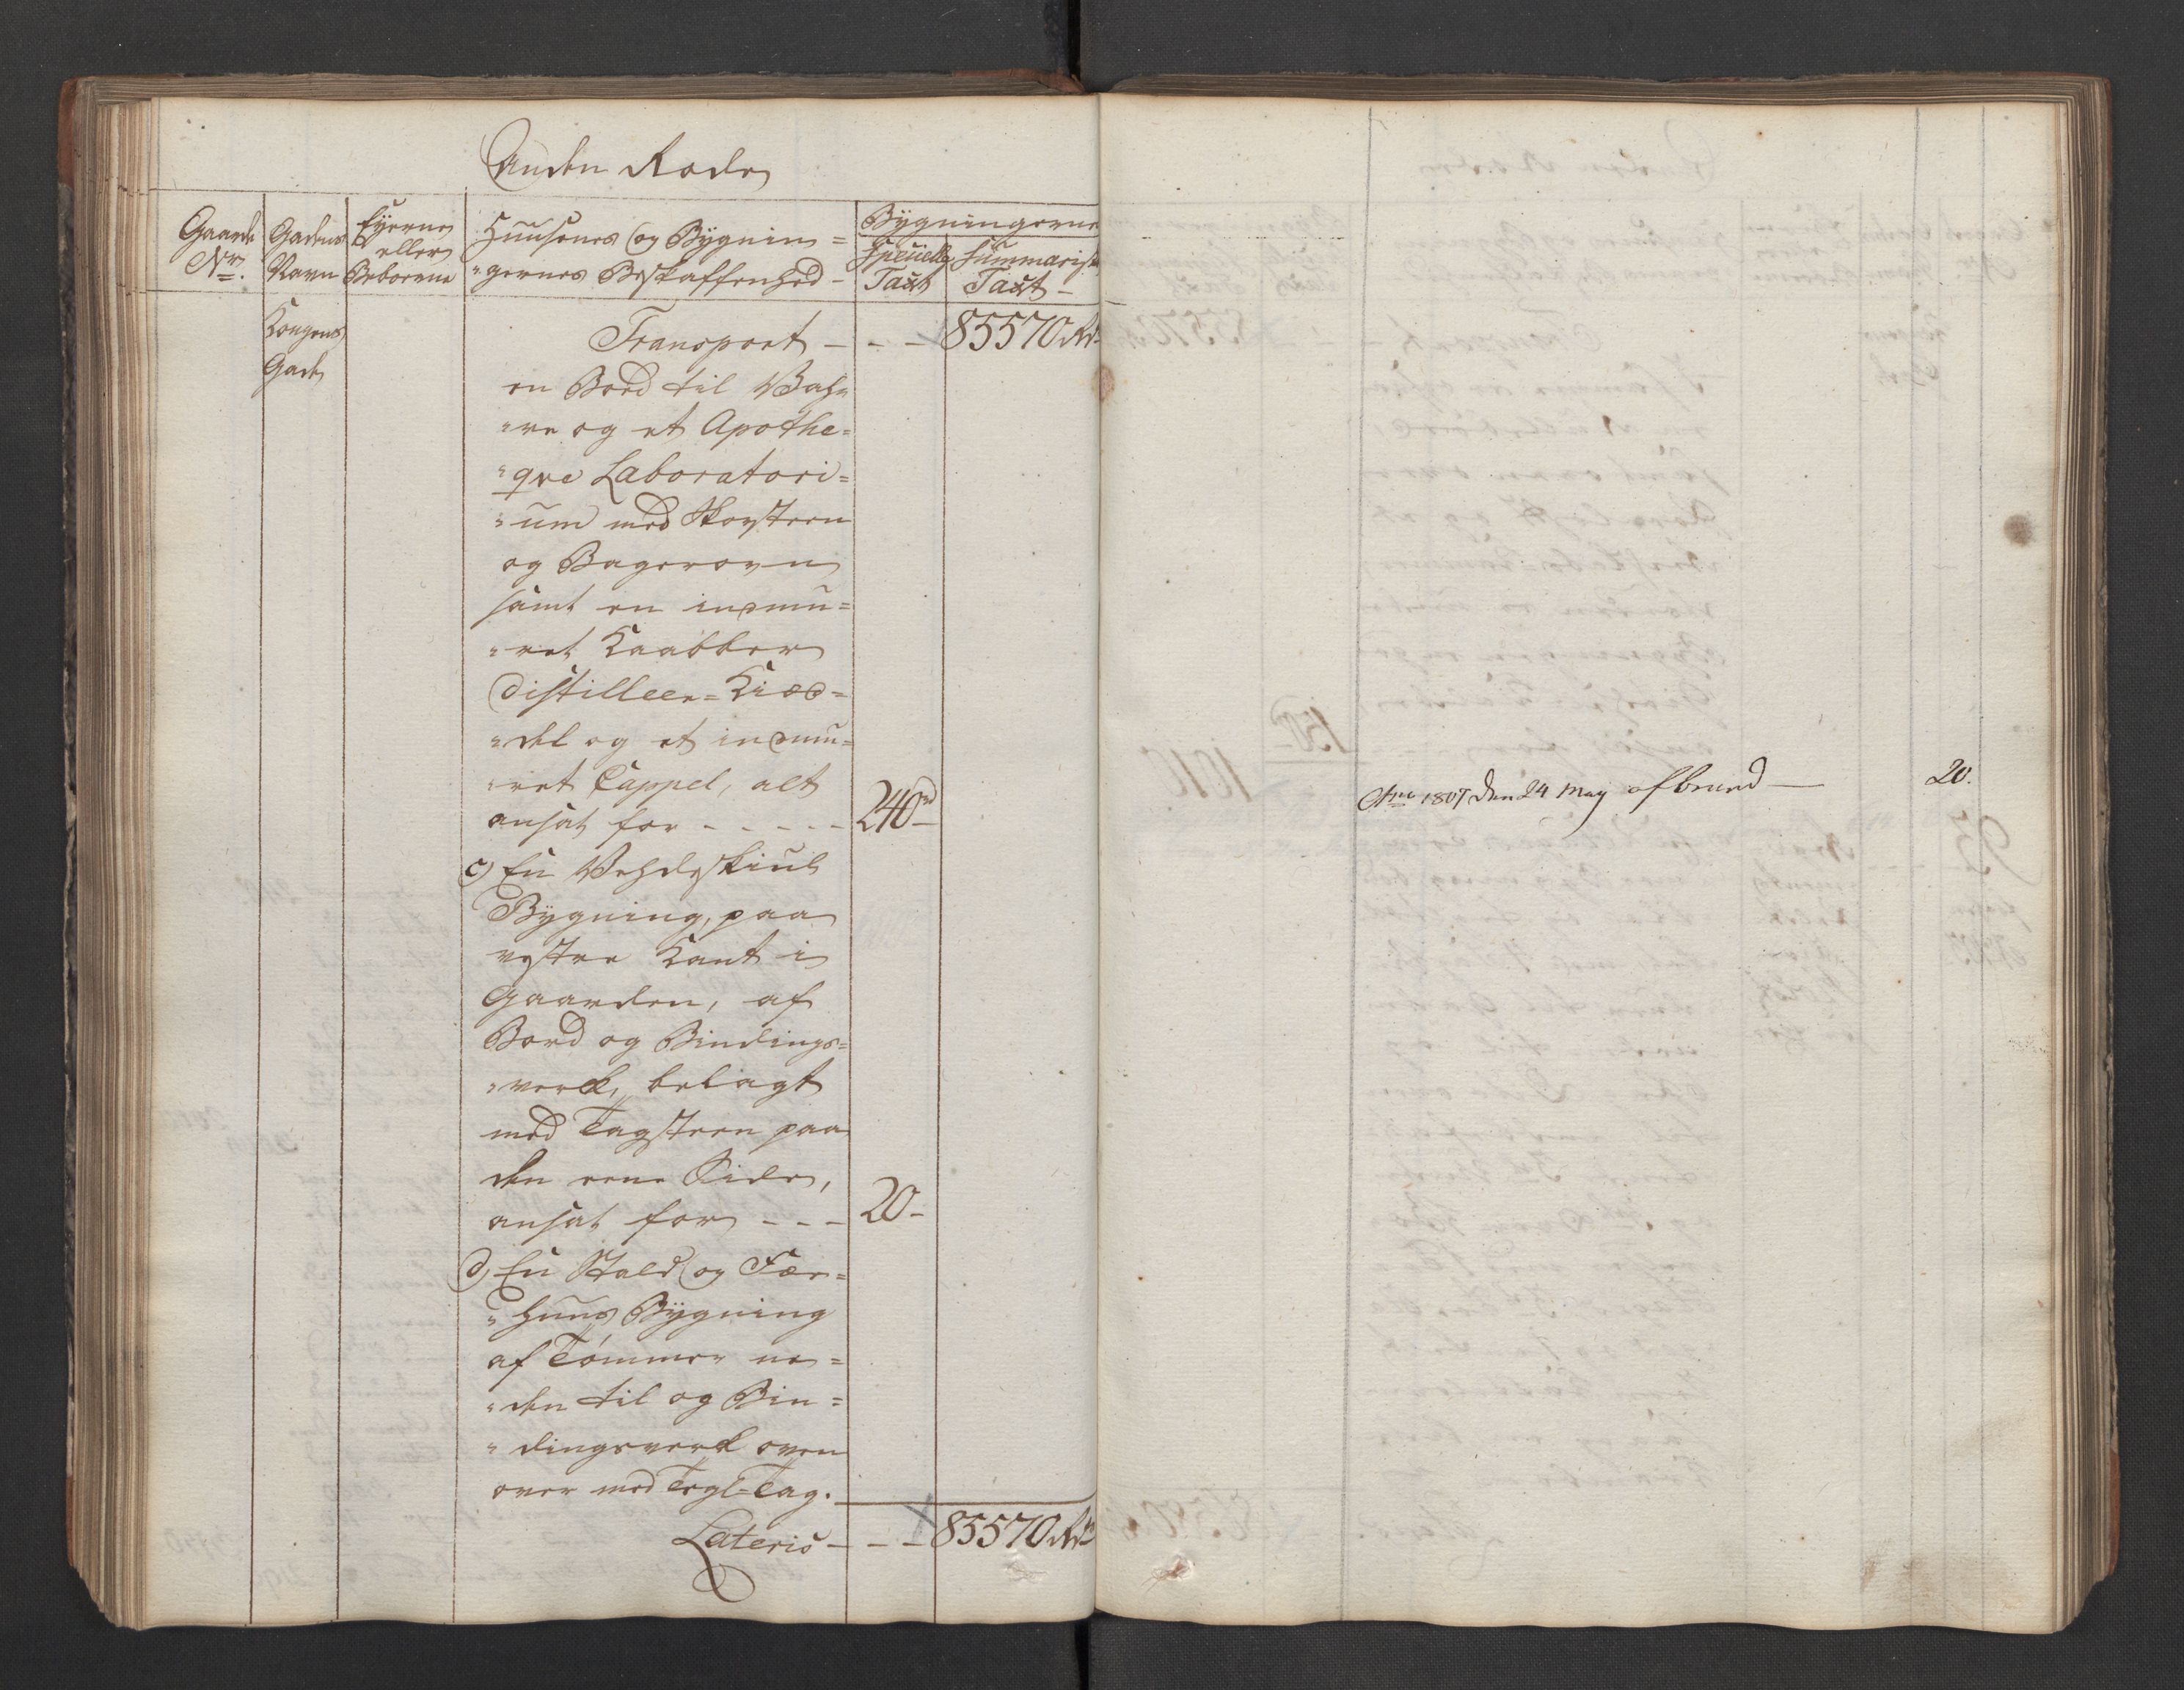 Anden Rode
Gaards Nr.
Gadens Navn
Eyerne eller Beboerne
Huusenes og Bÿgnin=
"gernes Beskaffenhed -
Bÿgningerne
Specielle Taxt
Summariske Taxt -
Kongens
Gade
Transport - - - 85570 Rd
en Bord til Vah=
"re og et Apothe=
"qve Laboratori=
"um med Skorsteen
og Bagerovn
samt en indmu=
"ret Kaabber
Distilleer=Kied=
"del og et indmu=
"ret Cappel, alt
ansat for - - - - - 240rd -
c) En Vehdeskiul
Bÿgning, paa
vestre Kant i
Gaarden, af
Bord og Bindings=
"verck, belagt
med Tagsteen paa
den eene Side,
ansat for - - - 20 -
d) En Stald og Fæe=
"huus Bÿgning
af Tømmer ne=
"den til og Bin=
"dingsverck oven
over med Tegl=Tag.
Lateris - - - 85570 Rd
Ano 1807 den 24 May afbrund — 20.